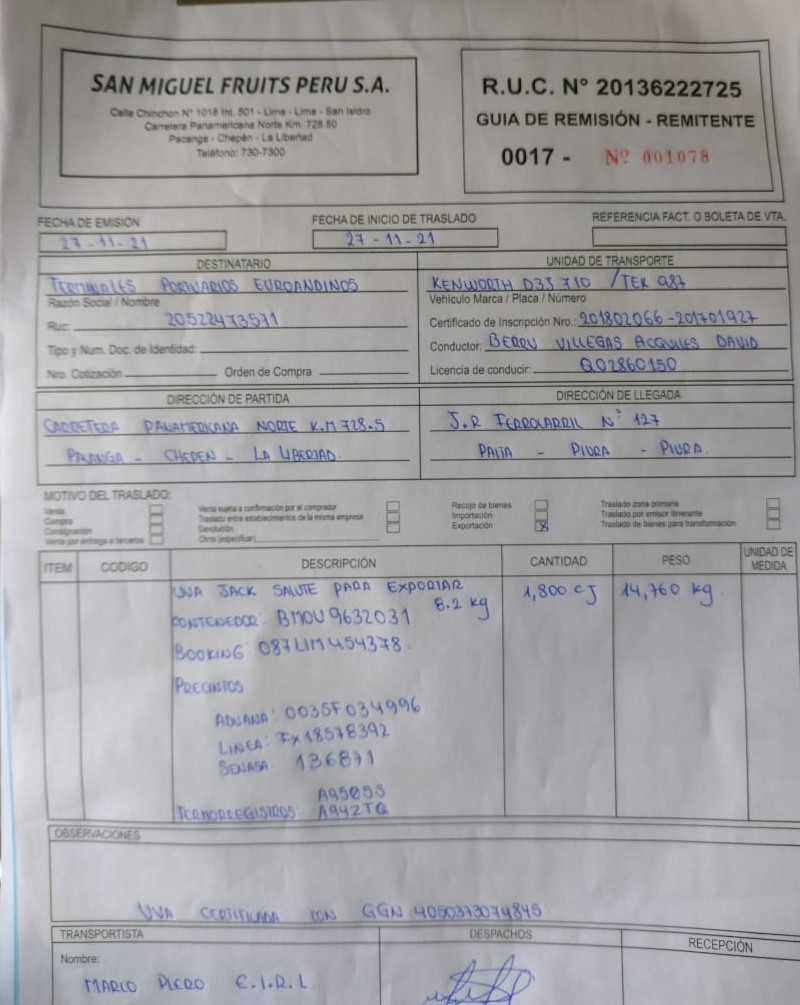 SAN MIGUEL FRUITS PERU S.A.
Calle Chinchon N° 1018 Int. 501 - Lima - Lima - San Isidro
Carretera Panamericana Norte Km. 728.50
Pacanga - Chepén - La Libertad
Teléfono: 730-7300
R.U.C. N° 20136222725
GUIA DE REMISIÓN - REMITENTE
0017 - Nº 001078
FECHA DE EMISIÓN
27-11-21
FECHA DE INICIO DE TRASLADO
27-11-21
REFERENCIA FACT. O BOLETA DE VTA.
DESTINATARIO
TERMINALES PORTUARIOS EUROANDINOS
Razón Social / Nombre
Ruc: 20522473571
Tipo y Num. Doc. de Identidad:
Nro. Cotización Orden de Compra
UNIDAD DE TRANSPORTE
KENWORTH D3J 710 / TEK 987
Vehículo Marca / Placa / Número
Certificado de Inscripción Nro.: 201802066-201701927
Conductor: BERRU VILLEGAS ACQUILES DAVID
Licencia de conducir: Q02860150
DIRECCIÓN DE PARTIDA
CARRETERA PANAMERICANA NORTE K.M 728.5
PACANGA - CHEPEN - LA LIBERTAD
DIRECCIÓN DE LLEGADA
J.R FERROCARRIL N° 127
PAITA - PIURA - PIURA.
MOTIVO DEL TRASLADO:
Venta
Compra
Consignación
Venta por entrega a terceros
Venta sujeta a confirmación por el comprador
Traslado entre establecimientos de la misma empresa
Devolución
Otros (especificar)
Recojo de bienes
Importación
Exportación
Traslado zona primaria
Traslado por emisor itinerante
Traslado de bienes para transformación
ITEM CODIGO DESCRIPCIÓN CANTIDAD PESO UNIDAD DE MEDIDA
UVA JACK SALUTE PARA EXPORTAR 8.2 kg 1,800 CJ 14,760 kg
CONTENEDOR: BMOU 9632031
BOOKING: 087LIM454378
PRECINTOS
ADUANA: 003SF034996
LINEA: FX18578392
SENASA: 136871
A9505S
TERMORREGISTROS: A942TQ
OBSERVACIONES
UVA CERTIFICADA CON GGN 4050373074845
TRANSPORTISTA
Nombre:
MARCO PIERO E.I.R.L
DESPACHOS
RECEPCIÓN